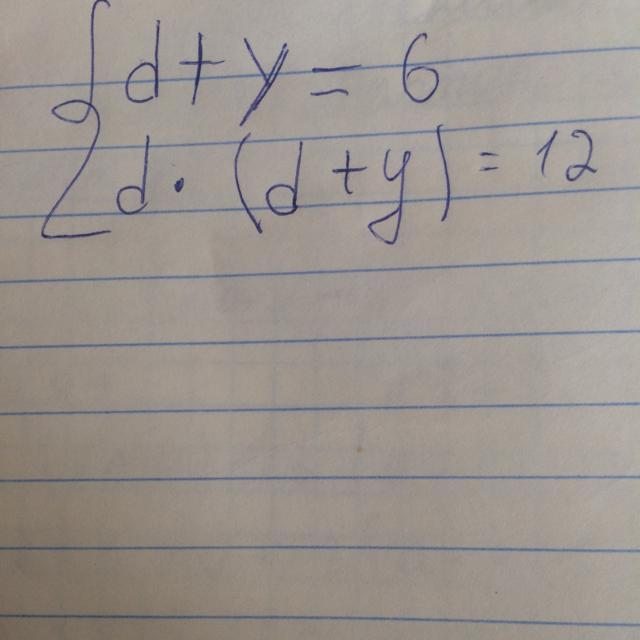 d + y = 6
d · (d + y) = 12